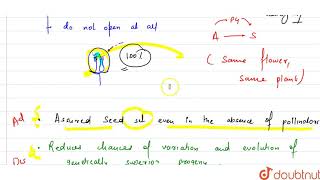 do not open at all
100%
A → S
( Same flower,
same plant )
Ad
Assured seed set even in the absence of pollinator
Dis
Reduces chances of variation and evolution of
genetically superior progeny
doubtnut